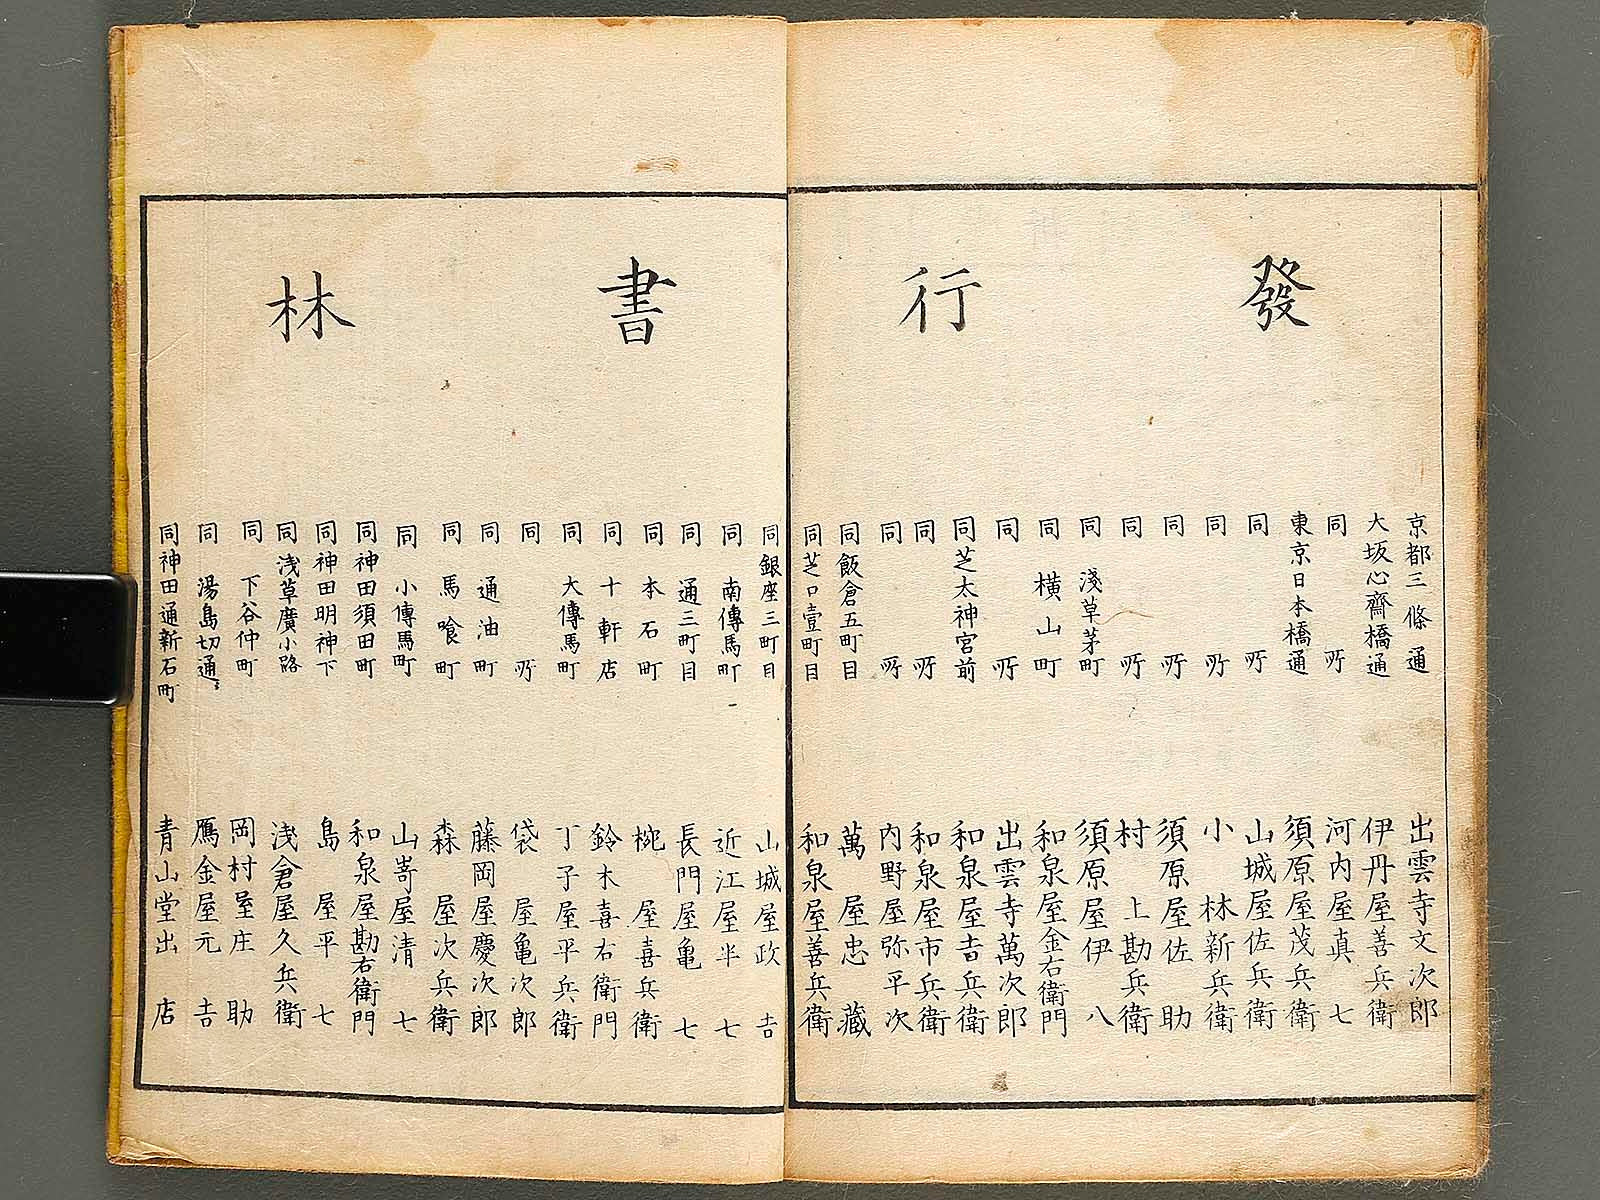 發行書林
京都三條通 出雲寺文次郎
大坂心齋橋通 伊丹屋善兵衛
同所 河内屋真七
東京日本橋通 須原屋茂兵衛
同所 山城屋佐兵衛
同所 小林新兵衛
同所 須原屋佐助
同所 村上勘兵衛
同淺草茅町 須原屋伊八
同横山町 和泉屋金右衛門
同所 出雲寺萬次郎
同芝太神宮前 和泉屋吉兵衛
同所 和泉屋市兵衛
同所 内野屋弥平次
同飯倉五町目 萬屋忠藏
同芝口壹町目 和泉屋善兵衛
同銀座三町目 山城屋政吉
同南傳馬町 近江屋半七
同通三町目 長門屋亀七
同本石町 椀屋喜兵衛
同十軒店 鈴木喜右衛門
同大傳馬町 丁子屋平兵衛
同所 袋屋亀次郎
同通油町 藤岡屋慶次郎
同馬喰町 森屋次兵衛
同小傳馬町 山嵜屋清七
同神田須田町 和泉屋勘右衛門
同神田明神下 島屋平七
同浅草廣小路 浅倉屋久兵衛
同下谷仲町 岡村屋庄助
同湯島切通 鴈金屋元吉
同神田通新石町 青山堂出店